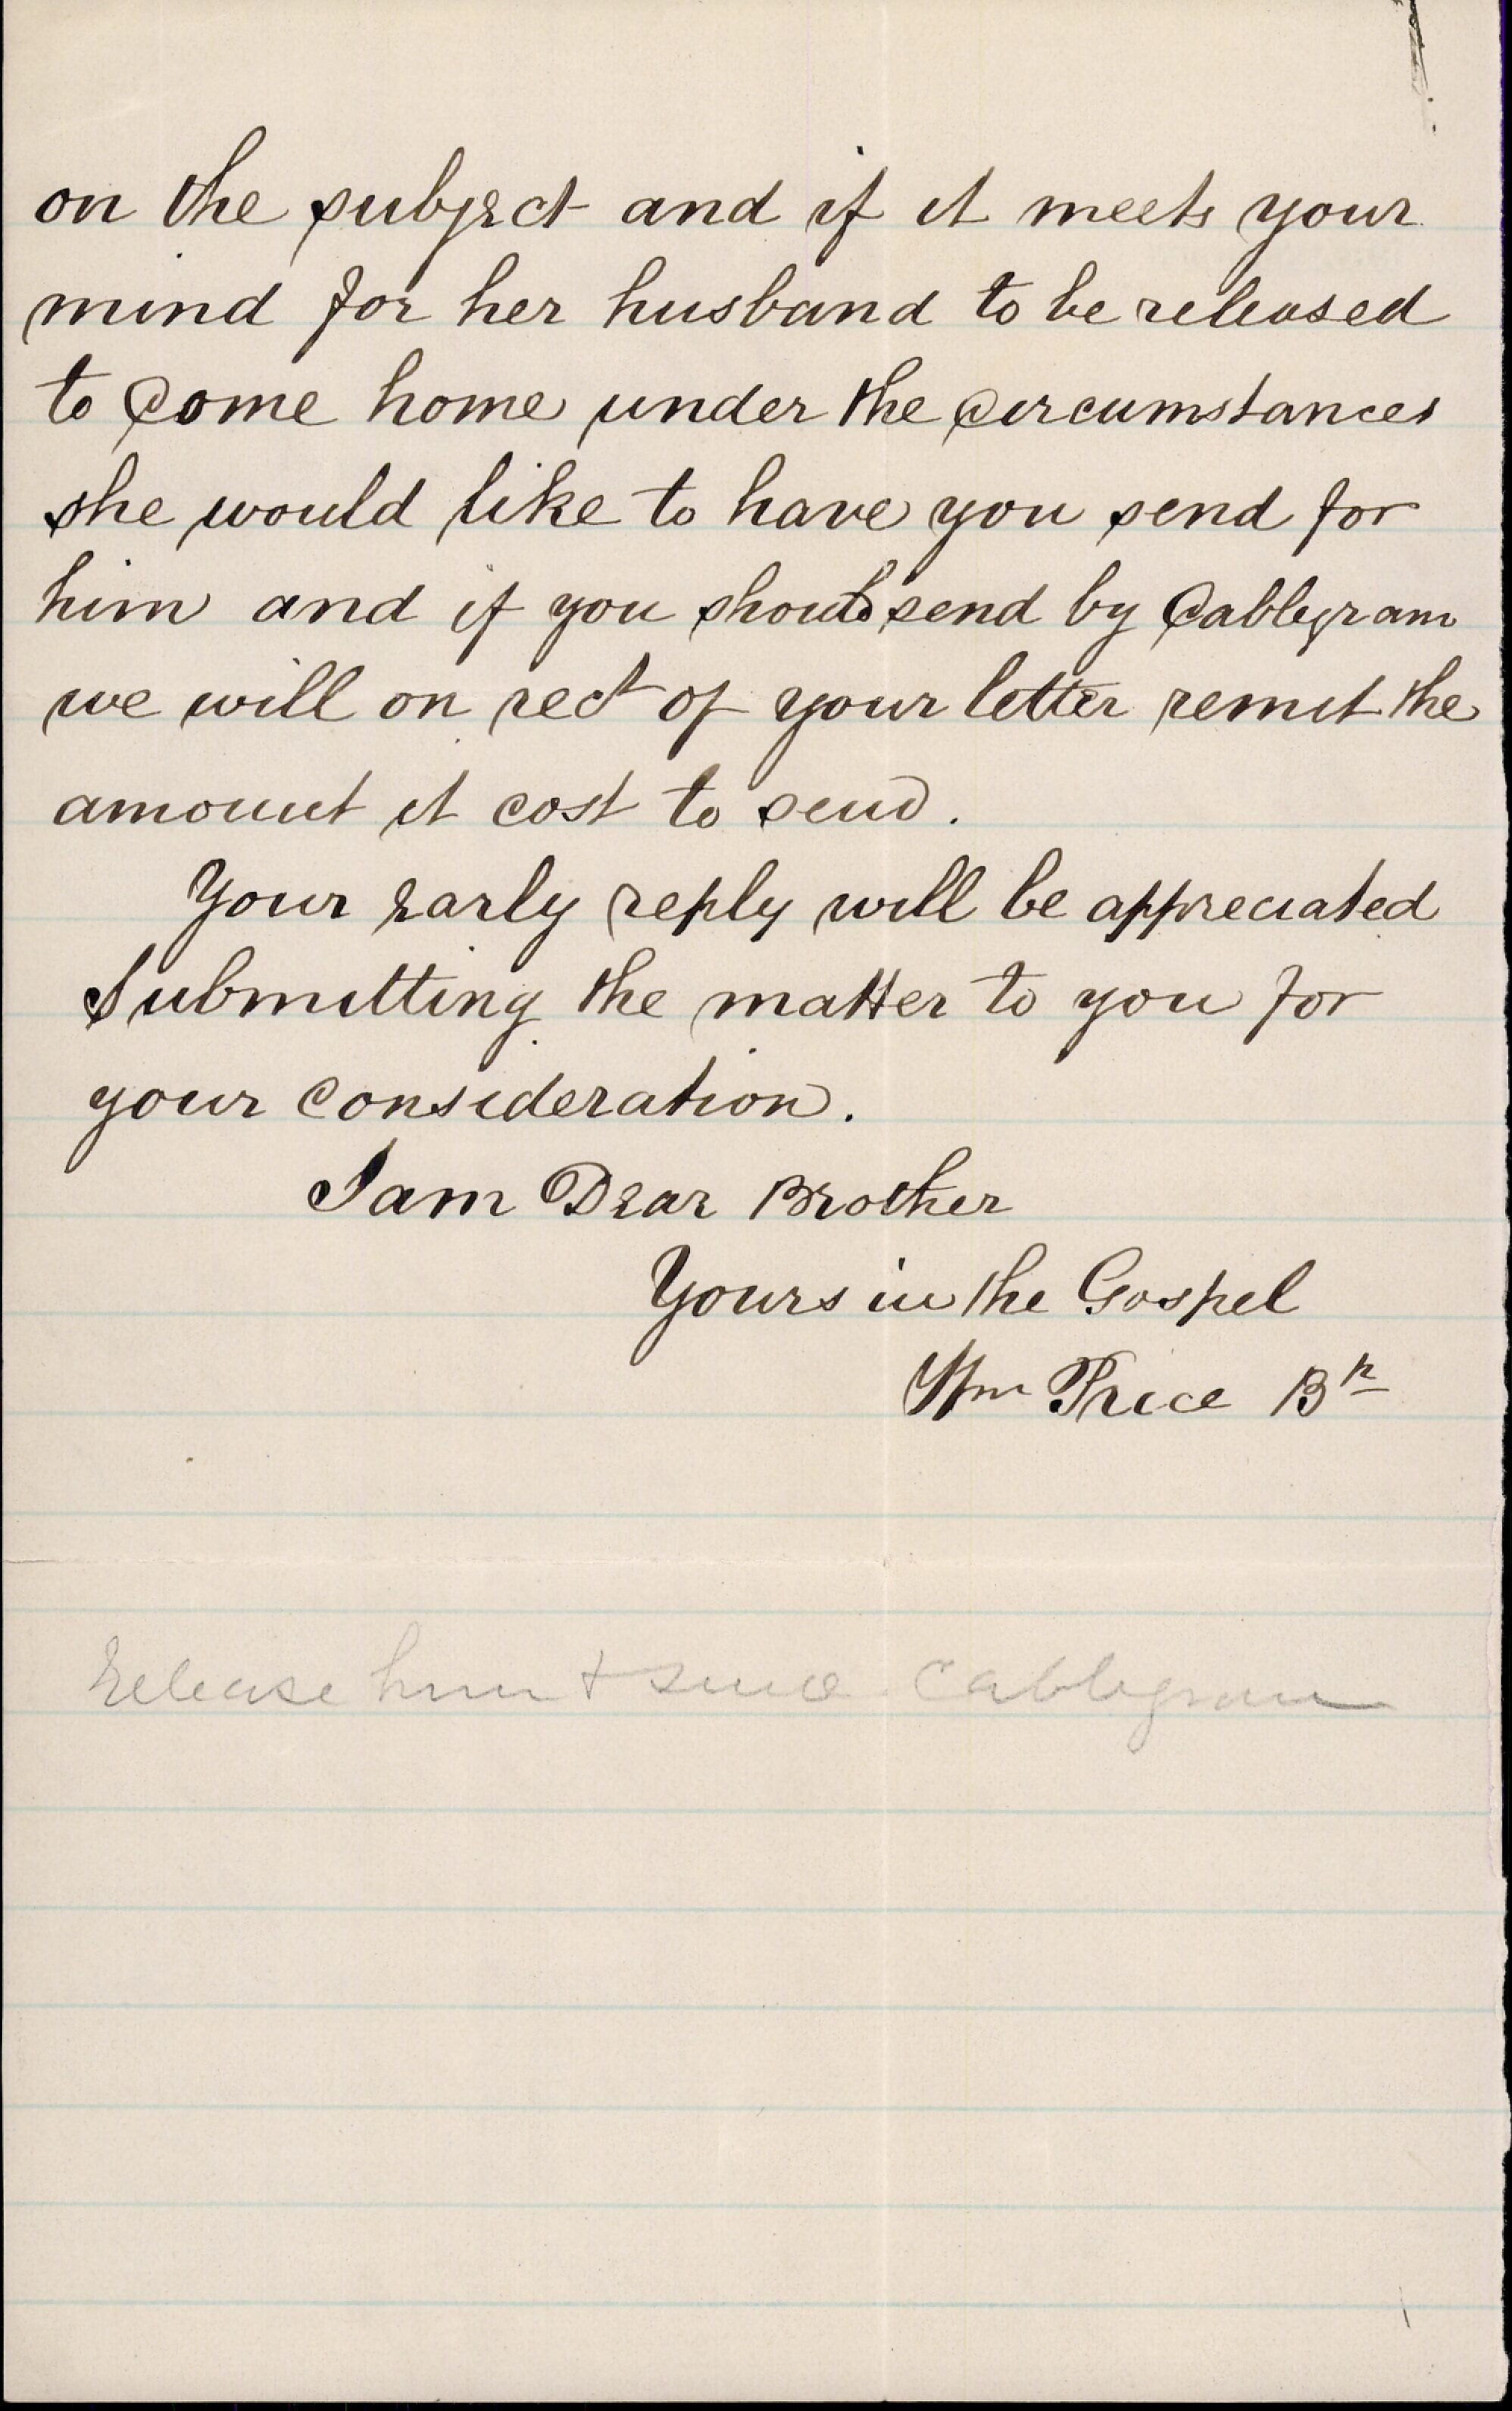 on the subject and if it meets your
mind for her husband to be released
to come home under the circumstances
she would like to have you send for
him and if you should send by Cablegram
we will on rect of your letter remit the
amount it cost to send.
Your early reply will be appreciated
Submitting the matter to you for
your consideration.
I am Dear Brother
Yours in the Gospel
Wm Price Bp
Release him & send Cablegram